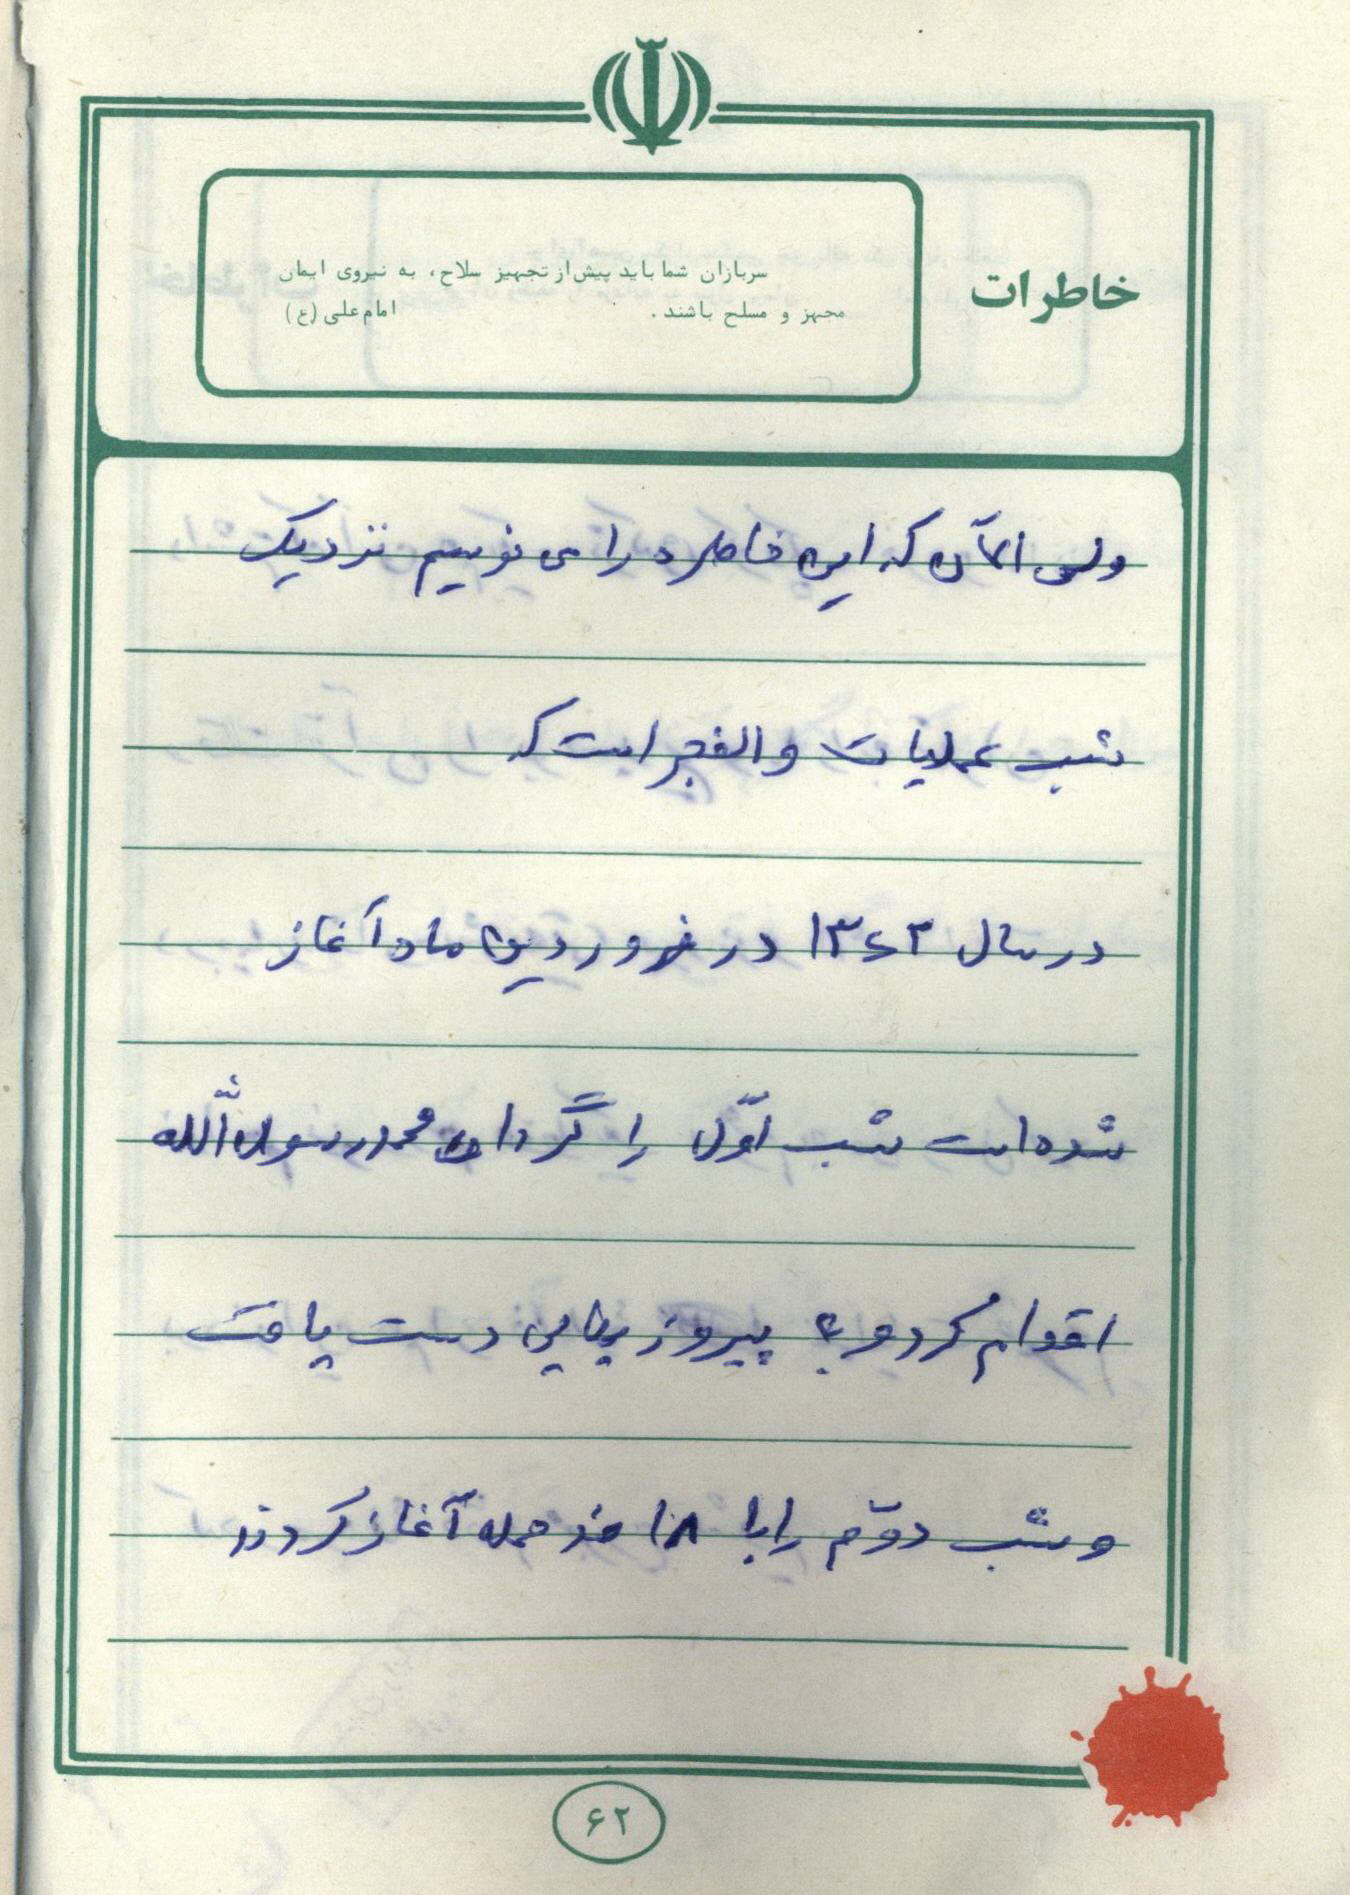 خاطرات
سربازان شما باید پیش از تجهیز سلاح، به نیروی ایمان
مجهز و مسلح باشند. امام علی (ع)
ولی الآن که این خاطره را می نویسم نزدیک
شب عملیات والفجر است که
در سال ۱۳۶۳ در فروردین ماه آغاز
شده است شب اوّل را گردان محمد رسول الله
اقدام کرد و به پیروزیهایی دست یافت
و شب دوّم را با ۱۸ حمله آغاز کردند
۶۲